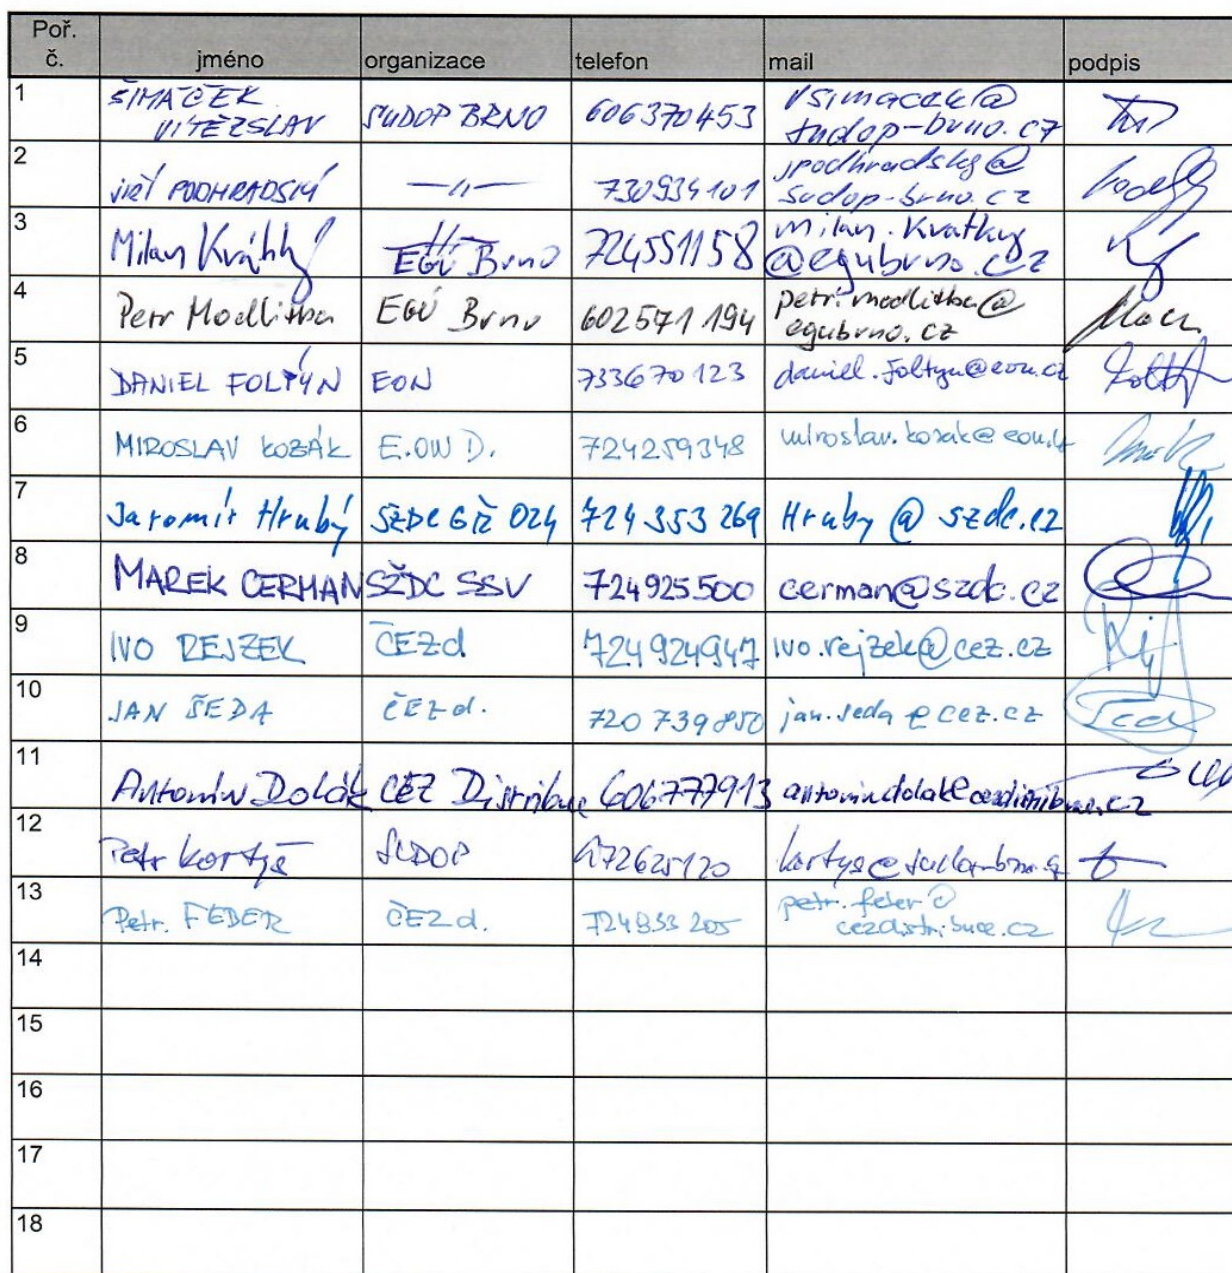 Poř. č. jméno organizace telefon mail podpis
1 ŠIMÁČEK VÍTĚZSLAV SUDOP BRNO 606370453 vsimacek@sudop-brno.cz
2 JIŘÍ PODHRADSKÝ —〃— 730934101 jpodhradsky@sudop-brno.cz
3 Milan Krátký EGÚ Brno 724551158 milan.kratky@egubrno.cz
4 Petr Modlitba EGÚ Brno 602571194 petr.modlitba@egubrno.cz
5 DANIEL FOLTÝN EON 733670123 daniel.foltyn@eon.cz
6 MIROSLAV KOZÁK E.ON D. 724259348 miroslav.kozak@eon.cz
7 Jaromír Hrubý SŽDC GŘ O24 724 353 269 Hruby@szdc.cz
8 MAREK CERMAN SŽDC SSV 724925500 cerman@szdc.cz
9 IVO REJZEK ČEZd 724924947 ivo.rejzek@cez.cz
10 JAN ŠEDA ČEZd. 720 739 850 jan.seda@cez.cz
11 Antonín Dolák ČEZ Distribuce 606777913 antonin.dolak@cezdistribuce.cz
12 Petr Kortyš SUDOP 972625120 kortys@sudop-brno.cz
13 Petr. FEBER ČEZd. 724833205 petr.feber@cezdistribuce.cz
14
15
16
17
18